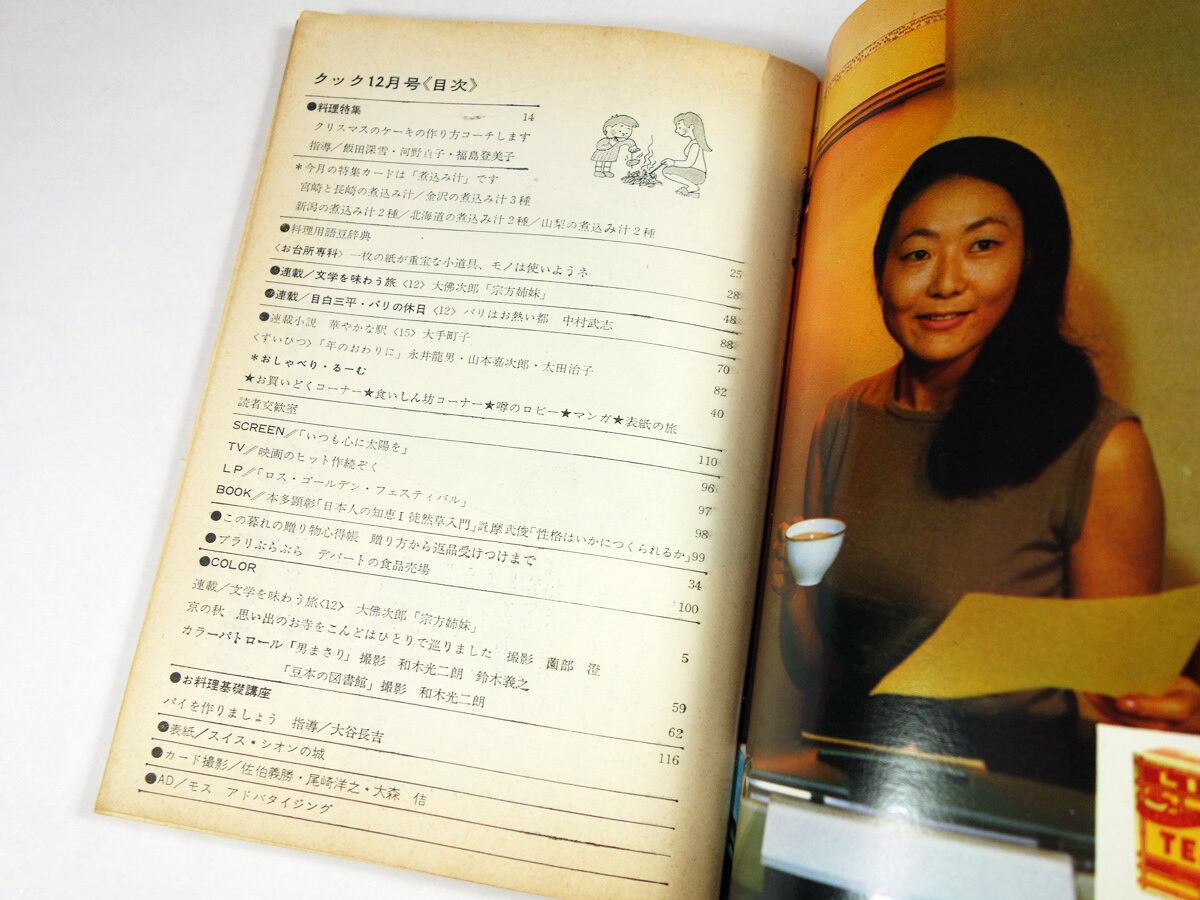 クック12月号《目次》
●料理特集 14
クリスマスのケーキの作り方コーチします
指導／飯田深雪・河野貞子・福島登美子
＊今月の特集カードは「煮込み汁」です
宮崎と長崎の煮込み汁／金沢の煮込み汁3種
新潟の煮込み汁2種／北海道の煮込み汁2種／山梨の煮込み汁2種
●料理用語豆辞典 25
〈お台所専科〉一枚の紙が重宝な小道具、モノは使いようネ 28
●連載／文学を味わう旅〈12〉大佛次郎「宗方姉妹」 48
●連載／目白三平・パリの休日〈12〉パリはお熱い都 中村武志 88
●連載小説 華やかな駅〈15〉大手町子 70
〈ずいひつ〉「年のおわりに」永井龍男・山本嘉次郎・太田治子 82
＊おしゃべり・るーむ 40
★お買いどくコーナー★食いしん坊コーナー★噂のロビー★マンガ★表紙の旅
読者交歓室 110
SCREEN／「いつも心に太陽を」 96
TV／映画のヒット作続ぞく 97
LP／「ロス・ゴールデン・フェスティバル」 98
BOOK／本多顕彰「日本人の知恵Ⅰ徒然草入門」詫摩武俊「性格はいかにつくられるか」99
●この暮れの贈り物心得帳 贈り方から返品受けつけまで 34
●ブラリぶらぶら デパートの食品売場 100
●COLOR
連載／文学を味わう旅〈12〉 大佛次郎「宗方姉妹」 5
京の秋 思い出のお寺をこんどはひとりで巡りました 撮影 薗部 澄
カラーパトロール「男まさり」撮影 和木光二朗 鈴木義之 59
「豆本の図書館」撮影 和木光二朗 62
●お料理基礎講座
パイを作りましょう 指導／大谷長吉 116
●表紙／スイス・シオンの城
●カード撮影／佐伯義勝・尾崎洋之・大森 佶
●AD／モス アドバタイジング
TE